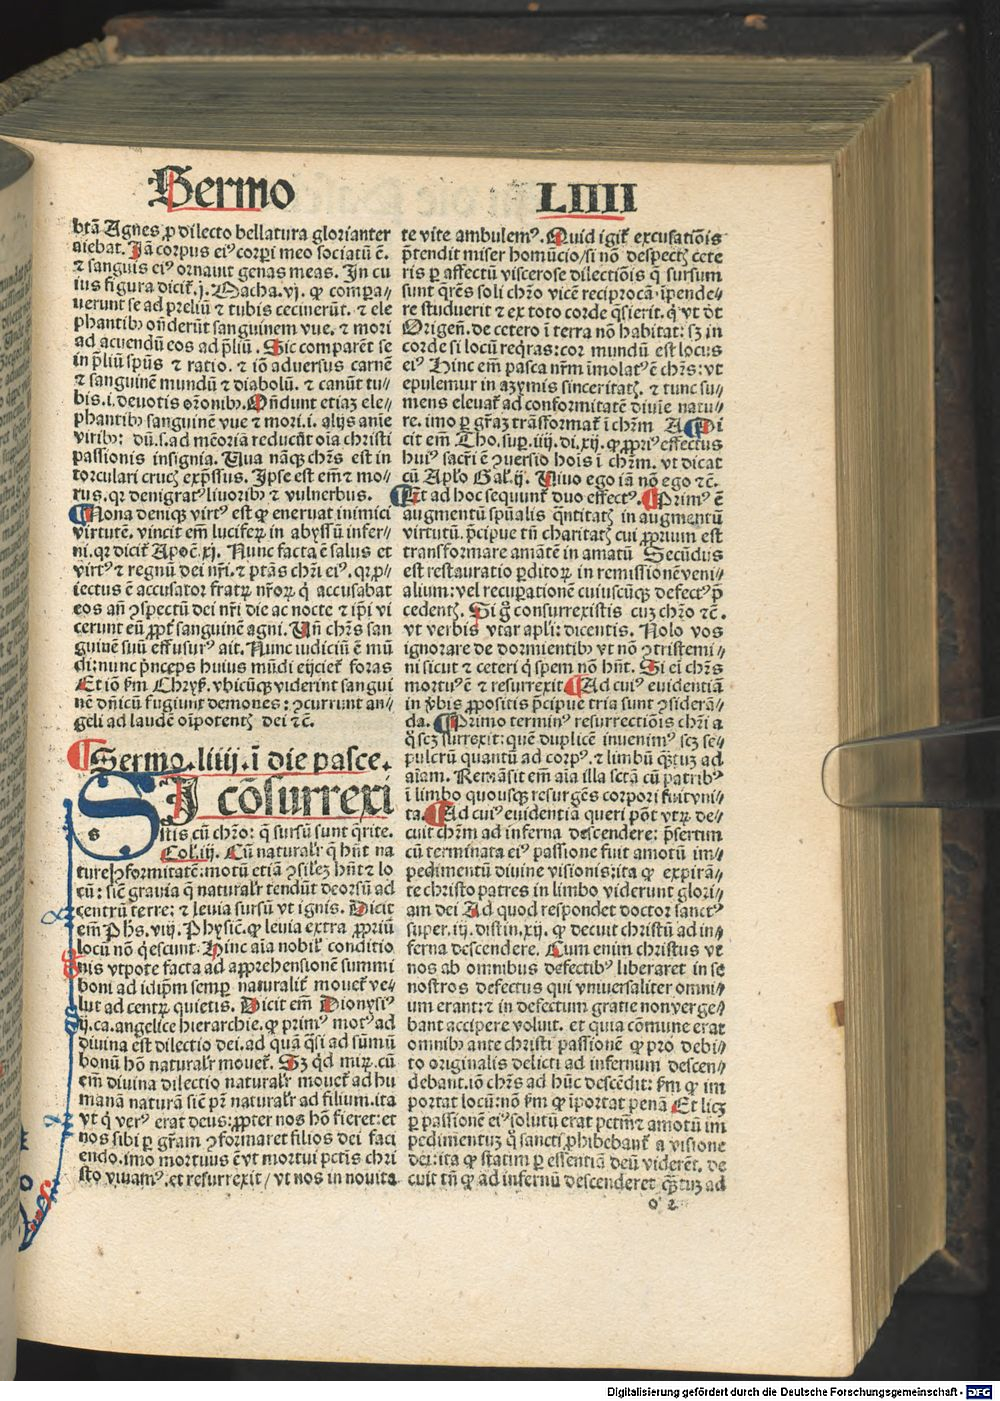 Sermo LIIII
btā Agnes ꝓ dilecto bellatura glorianter
aiebat. Jā corpus eiꝰ corpi meo sociatū ē.
⁊ sanguis eiꝰ ornauit genas meas. In cu
ius figura dicit̄. j. Macha. vj. ꝙ compara⸗
uerunt se ad preliū ⁊ tubis cecinerūt. ⁊ ele
phantibꝰ on̄derūt sanguinem vue. ⁊ mori
ad acuendū eos ad p̄liū. Sic comparēt se
in p̄liū spūs ⁊ ratio. ⁊ iō aduersus carnē
⁊ sanguinē mundū ⁊ diabolū. ⁊ canūt tu⸗
bis. i. deuotis orōnibꝰ. On̄dunt etiaꝫ ele⸗
phantibꝰ sanguinē vue ⁊ mori. i. alijs anīe
viribꝰ: dū. s. ad mēoriā reducūt oīa christi
passionis insignia. Uua nāqꝫ chr̄s est in
torculari crucꝭ exp̄ssus. Ipse est em̄ ⁊ mo⸗
rus. qꝛ denigratꝰ liuoribꝰ ⁊ vulneribus.
¶ Nona deniqꝫ virtꝰ est ꝙ eneruat inimici
virtutē. vincit em̄ luciferꝝ in abyssū infer⸗
ni. qꝛ dicit̄ Apoc̄. xj. Nunc facta ē salus et
virtꝰ ⁊ regnū dei nr̄i. ⁊ ptās chr̄i eiꝰ. qꝛ ꝓ⸗
iectus ē accusator fratrꝝ nr̄oꝝ q̇ accusabat
eos an̄ ꝯspectū dei nr̄i die ac nocte ⁊ ip̄i vi
cerunt eū ꝓpt̄ sanguinē agni. Vn̄ chr̄s san
guinē suū effusurꝰ ait. Nunc iudiciū ē mū
di: nunc p̄nceps huius mūdi eijciet̄ foras
Et iō ẜm Chryẜ. vbicūqꝫ viderint sangui
nē dn̄icū fugiunt demones: ꝯcurrunt an⸗
geli ad laudē oīpotentꝭ dei ⁊c̄.
¶ Sermo. liiij. ī die pasce.
SI cōsurrexi
stis cū chr̄o: q̄ sursū sunt q̄rite.
Col. iij. Cū naturalr̄ q̄ hn̄t na
ture ꝯformitatē: motū etiā ꝯsilēꝫ hn̄t ⁊ lo
cū: sic̄ grauia q̄ naturalr̄ tendūt deorsū ad
centrū terre: ⁊ leuia sursū vt ignis. Dicit
em̄ Phs. viij. Physic̄. ꝙ leuia extra ꝓpriū
locū nō q̇escunt. Hinc aīa nobil̄ conditio
nis vtpote facta ad apprehensionē summi
boni ad idip̄m semꝑ naturalit̄ mouet̄ ve⸗
lut ad centrꝝ quietis. Dicit em̄ Dionysiꝰ
ij. ca. angelice hierarchie. ꝙ primꝰ motꝰ ad
diuina est dilectio dei. ad quā q̄si ad sūmū
bonū hō naturalr̄ mouet̄. Sꝫ q̇d mirꝝ. cū
em̄ diuina dilectio naturalr̄ mouet̄ ad hu
manā naturā sic̄ pr̄ naturalr̄ ad filium. ita
vt q̇ verꝰ erat deus: ꝓpter nos hō fieret: et
nos sibi ꝑ gr̄am ꝯformaret filios dei faci
endo. imo mortuus ē vt mortui pctīs chri
sto viuamꝰ. et resurrexit / vt nos in nouita
te vite ambulemꝰ. Quid igit̄ excusatiōis
p̄tendit miser homūcio / si nō despectꝭ cete
ris ꝑ affectū viscerose dilectiōis q̄ sursum
sunt q̄rēs soli chr̄o vicē reciprocā īpende⸗
re studuerit ⁊ ex toto corde q̄sierit. q̇ vt dt̄
Origen̄. de cetero ī terra nō habitat: sꝫ in
corde si locū reqͥras: cor mundū est locus
eiꝰ Hinc em̄ pasca nr̄m īmolatꝰ ē chr̄s: vt
epulemur in azymis sinceritatꝭ. ⁊ tunc su⸗
mens eleuat̄ ad conformitatē diuīe natu⸗
re. imo ꝑ gr̄aꝫ trāsformat̄ ī chr̄m ¶ Di
cit em̄ Tho. suꝑ. iiij. di. xij. ꝙ ꝓpriꝰ effectus
huiꝰ sacr̄i ē ꝯuersio hoīs ī chr̄m. vt dicat
cū Aplo Gal. ij. Uiuo ego iā nō ego ⁊c̄.
¶ Et ad hoc sequunt̄ duo effectꝰ. ¶ Primꝰ ē
augmentū spūalis q̄ntitatꝭ in augmentū
virtutū. p̄cipue tn̄ charitatꝭ cui ꝓprium est
transformare amātē in amatū Secūdus
est restauratio ꝑditoꝝ in remissionē veni⸗
alium: vel recuperationē cuiuscūqꝫ defectꝰ p̄
cedentꝭ. Si g̊ consurrexistis cuꝫ chr̄o ⁊c̄.
vt verbis vtar apli: dicentis. Nolo vos
ignorare de dormientibꝰ vt nō ꝯtristemi⸗
ni sicut ⁊ ceteri q̇ spem nō hn̄t. Si em̄ chr̄s
mortuꝰ ē ⁊ resurrexit ¶ Ad cuiꝰ euidentiā
in v̄bis ꝓpositis p̄cipue tria sunt ꝯsiderā⸗
da. ¶ Primo terminꝰ resurrectiōis chr̄i a
q̊ scꝫ surrexit: quē duplicē inuenimꝰ scꝫ se⸗
pulcrū quantū ad corpꝰ. ⁊ limbū q̄ꝫtuꝫ ad
aīam. Remāsit em̄ aīa illa sctā cū patribꝰ
ī limbo quousqꝫ resurgēs corpori fuit vni⸗
ta. ¶ Ad cuiꝰ euidentia queri pōt vtꝝ de⸗
cuit chr̄m ad inferna descendere: p̄sertim
cū terminata eiꝰ passione fuit amotū im⸗
pedimentū diuine visionis: ita ꝙ expirā⸗
te christo patres in limbo viderunt glori⸗
am dei Ad quod respondet doctor sanctꝰ
super. iij. distin. xij. ꝙ decuit christū ad in⸗
ferna descendere. Cum enim christus vt
nos ab omnibus defectibꝰ liberaret in se
nostros defectus qui vniuersaliter omni⸗
um erant: ⁊ in defectum gratie non verge⸗
bant accipere voluit. et quia cōmune erat
omnibꝰ ante christi passionē ꝙ pro debi⸗
to originalis delicti ad infernum descen⸗
debant. iō chr̄s ad hūc descēdit: ẜm ꝙ im
portat locū: nō ẜm ꝙ īportat penā Et licꝫ
ꝑ passionē eiꝰ solutū erat pctm̄ ⁊ amotū im
pedimentuꝫ q̊ sancti ꝓhibebant̄ a visione
dei: ita ꝙ statim ꝑ essentiā deū viderēt. de
cuit tn̄ ꝙ ad infernū descenderet q̄ꝫtuꝫ ad
o 2
Digitalisierung gefördert durch die Deutsche Forschungsgemeinschaft - DFG